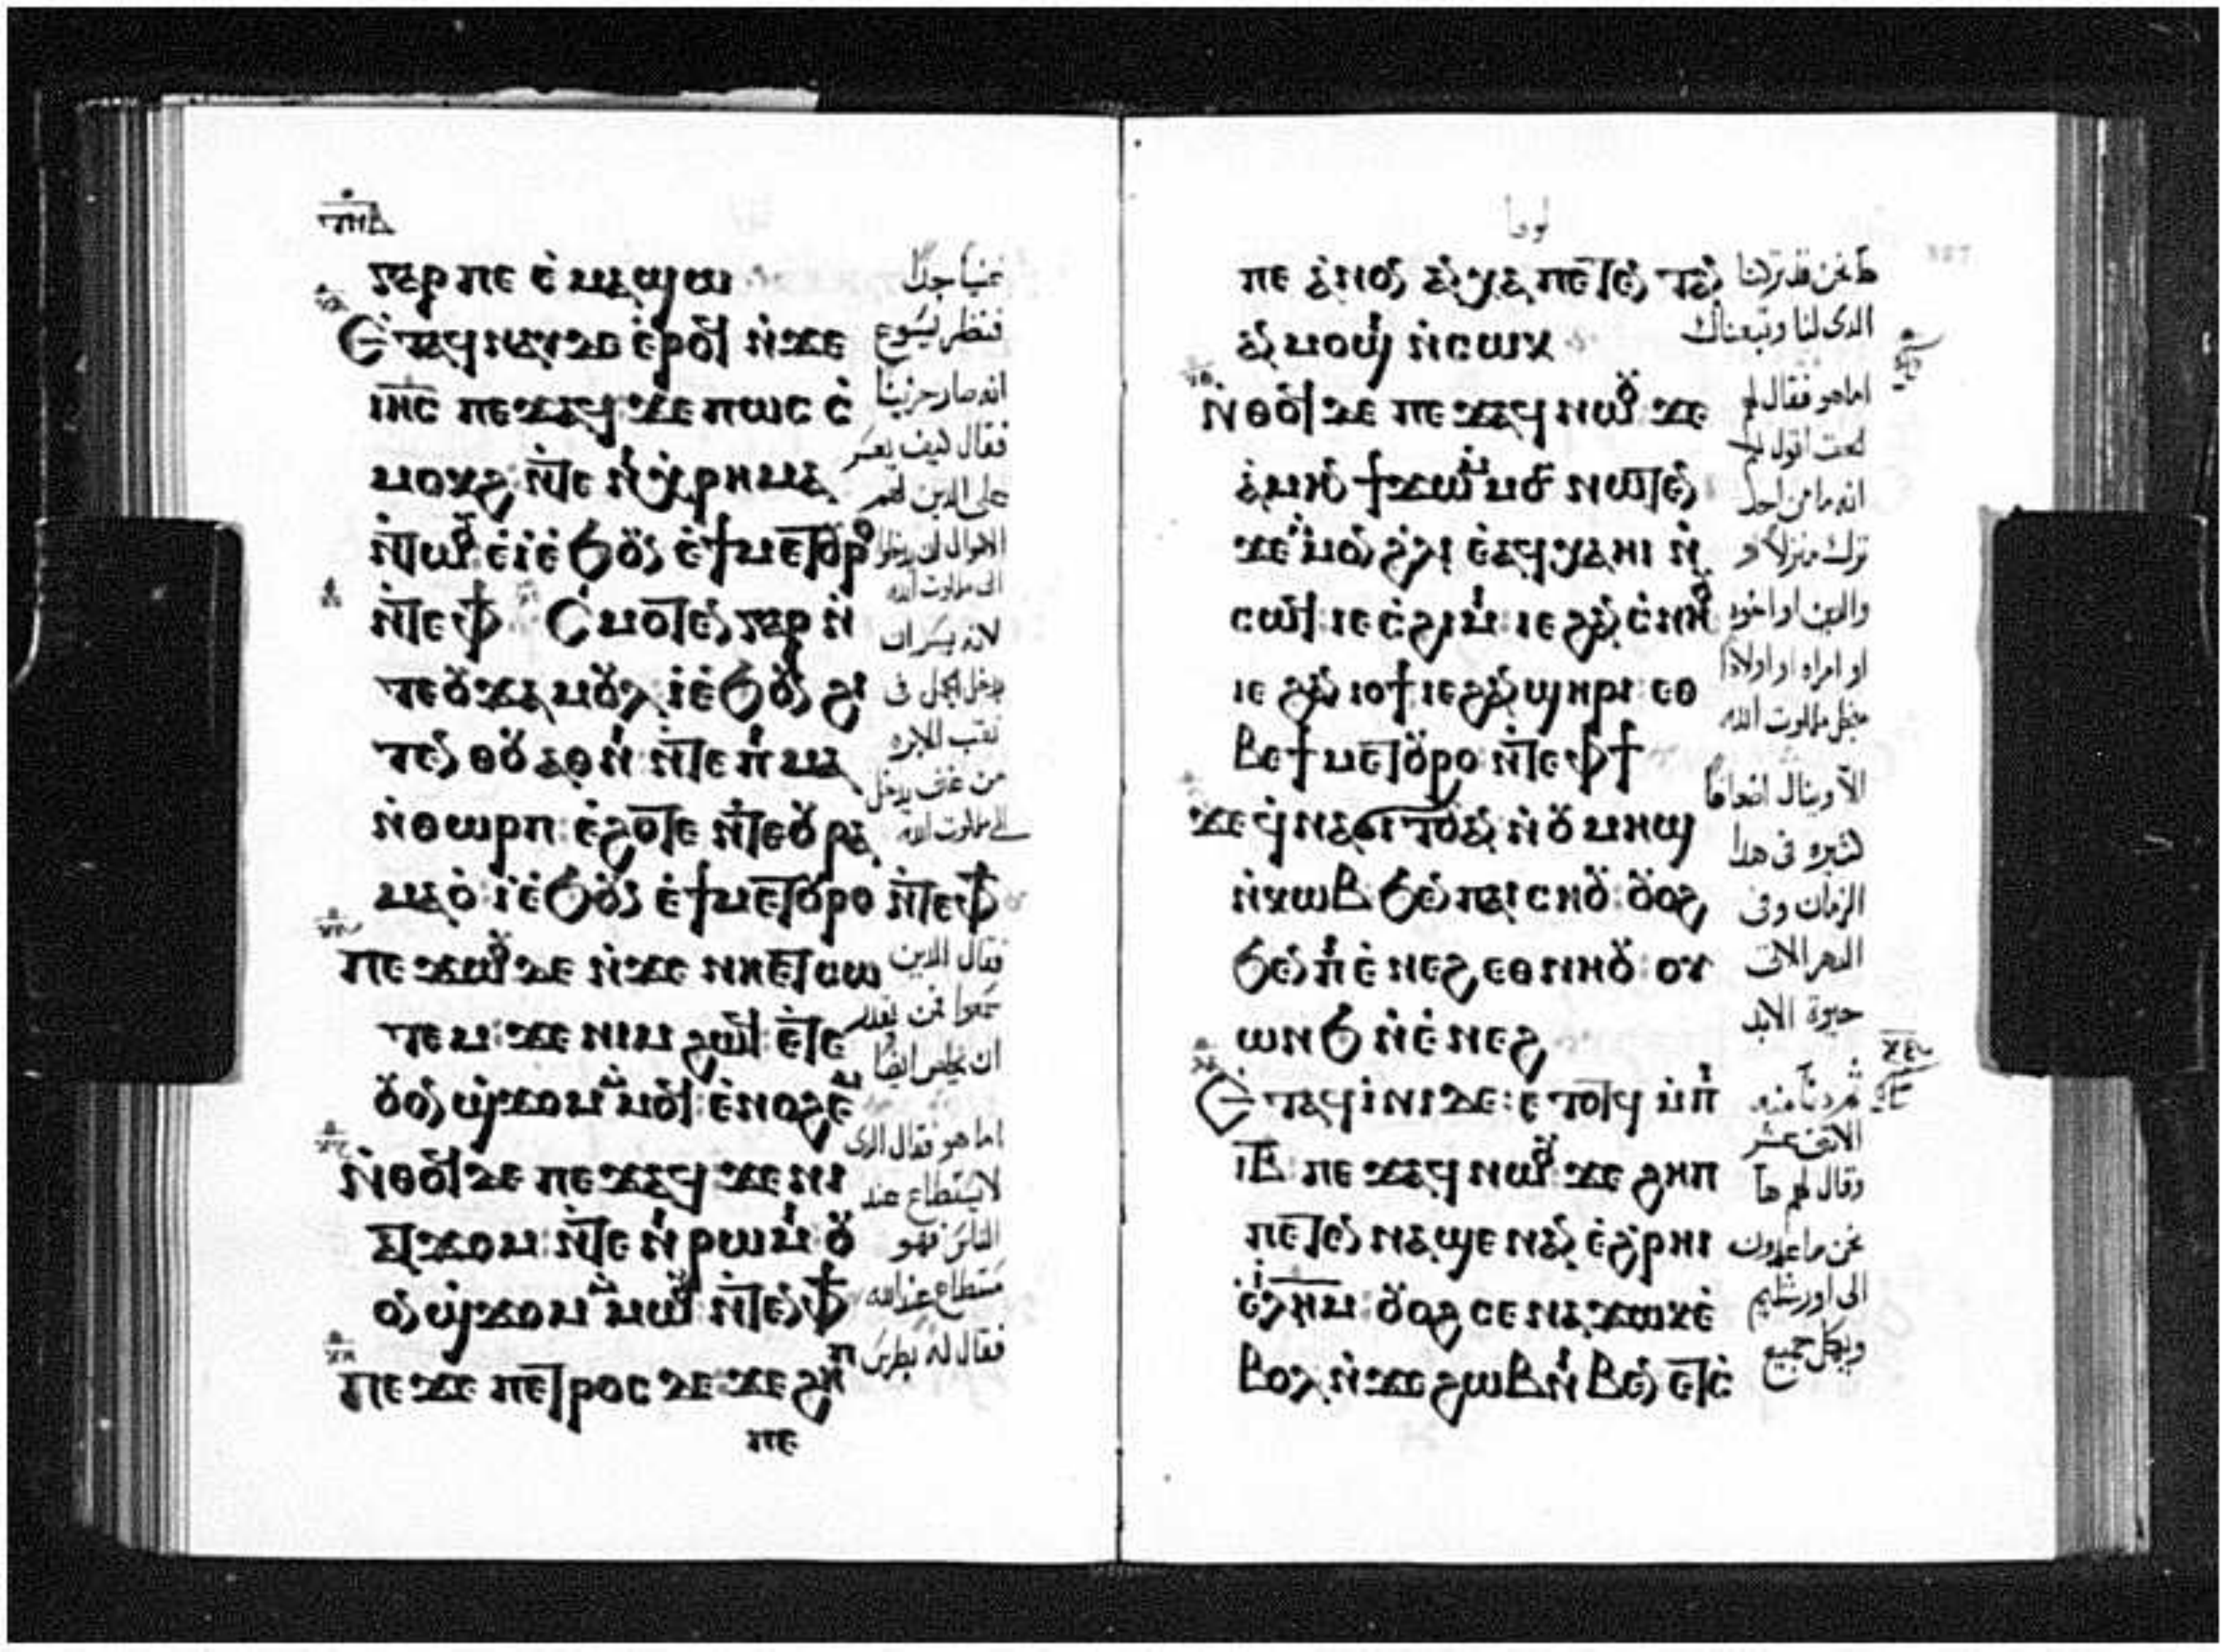 ⲅⲁⲣ ⲡⲉ ⲉ̀ⲙⲁϣⲱ
Ⲉ̀ⲧⲁϥⲛⲁⲩ ⲇⲉ ⲉ̀ⲣⲟϥ ⲛ̀ϫⲉ
ⲓⲏ̅ⲥ̅ ⲡⲉϫⲁϥ ϫⲉ ⲡⲱⲥ ⲥ̀
ⲙⲟⲕϩ ⲛ̀ⲧⲉ ⲛⲓⲭⲣⲏⲙⲁ
ⲛ̀ⲧⲱⲟⲩ ⲉ̀ⲓ̀ ⲉ̀ϧⲟⲩⲛ ⲉ̀ϯⲙⲉⲧⲟⲩⲣⲟ
ⲛ̀ⲧⲉ ⲫϯ Ⲥ̀ⲙⲟⲧⲉⲛ ⲅⲁⲣ ⲛ̀
ⲧⲉ ⲟⲩϫⲁⲙⲟⲩⲗ ⲓ̀ ⲉ̀ϧⲟⲩⲛ ϩⲓ
ⲧⲉⲛ ⲑⲟⲩⲁⲑⲛⲓ ⲛ̀ⲧⲉ ⲡⲓⲙⲁ
ⲛ̀ⲑⲱⲣⲡ ⲉ̀ϩⲟⲧⲉ ⲛ̀ⲧⲉ ⲟⲩⲣⲁ
ⲙⲁⲟ̀ ⲓ̀ ⲉ̀ϧⲟⲩⲛ ⲉ̀ϯⲙⲉⲧⲟⲩⲣⲟ ⲛ̀ⲧⲉ ⲫϯ
Ⲡⲉϫⲱⲟⲩ ⲇⲉ ⲛ̀ϫⲉ ⲛⲏⲉⲧⲥⲱ
ⲧⲉⲙ ϫⲉ ⲛⲓⲙ ϩⲱϥ ⲉ̀ⲧⲉ
ⲟⲩⲟⲛ ϣϫⲟⲙ ⲙ̀ⲙⲟϥ ⲉ̀ⲛⲟϩⲉⲙ
Ⲛ̀ⲑⲟϥ ⲇⲉ ⲡⲉϫⲁϥ ϫⲉ ⲛⲓ
ⲁⲧϫⲟⲙ ⲛ̀ⲧⲉ ⲛⲓⲣⲱⲙⲓ ⲟⲩ
ⲟⲛ ϣϫⲟⲙ ⲙ̀ⲙⲱⲟⲩ ⲛ̀ⲧⲉⲛ ⲫϯ
Ⲡⲉϫⲉ ⲡⲉⲧⲣⲟⲥ ⲇⲉ ϫⲉ ϩⲏⲡ
ⲡⲉ
غنيا جدا
فنظر يسوع
انه صار حزينا
فقال كيف يعسر
على الدين لهم
الاموال ان يدخلوا
الى ملكوت الله
لانه يسران
يدخل الجمل فى
ثقب الابره
من غنى يدخل
الى ملكوت الله
فقال الدين
سمعوا فمن يقدر
ان يخلص ايضا
اما هو فقال الدى
لا يستطاع عند
الناس فهو
مستطاع عند الله
فقال له بطرس
لوقا
ⲡⲉ ⲁ̀ⲛⲟⲛ ⲁⲛⲭⲁ ⲡⲉⲧⲉⲛⲧⲁⲛ
ⲁⲛⲙⲟϣⲓ ⲛ̀ⲥⲱⲕ
Ⲛ̀ⲑⲟϥ ⲇⲉ ⲡⲉϫⲁϥ ⲛⲱⲟⲩ ϫⲉ
ⲁ̀ⲙⲏⲛ ϯϫⲱ ⲙ̀ⲙⲟⲥ ⲛⲱⲧⲉⲛ
ϫⲉ ⲙ̀ⲙⲟⲛ ϩⲗⲓ ⲉ̀ⲁϥⲭⲁ ⲏⲓ ⲛ̀
ⲥⲱϥ ⲓⲉ ⲥ̀ϩⲓⲙⲓ ⲓⲉ ϩⲁⲛⲥ̀ⲛⲏⲟⲩ
ⲓⲉ ϩⲁⲛⲓⲟϯ ⲓⲉ ϩⲁⲛϣⲏⲣⲓ ⲉⲑ
ⲃⲉ ϯⲙⲉⲧⲟⲩⲣⲟ ⲛ̀ⲧⲉ ⲫϯ
ϫⲉ ϥ̀ⲛⲁϭⲓⲧⲟⲩ ⲁⲛ ⲛ̀ⲟⲩⲙⲏϣ
ⲛ̀ⲕⲱⲃ ϧⲉⲛ ⲡⲁⲓⲥⲏⲟⲩ ⲟⲩⲟϩ
ϧⲉⲛ ⲡⲓⲉ̀ⲛⲉϩ ⲉⲑⲛⲏⲟⲩ ⲟⲩ
ⲱⲛϧ ⲛ̀ⲉ̀ⲛⲉϩ
Ⲉ̀ⲧⲁϥⲓ̀ⲛⲓ ⲇⲉ ⲉ̀ⲧⲟⲧϥ ⲙ̀ⲡⲓ
ⲓ̅ⲃ̅ ⲡⲉϫⲁϥ ⲛⲱⲟⲩ ϫⲉ ϩⲏⲡ
ⲡⲉ ⲧⲉⲛⲛⲁϣⲉ ⲛⲁⲛ ⲉ̀ϩⲣⲏⲓ
ⲉ̀ⲓ̅ⲗ̅ⲏ̅ⲙ̅ ⲟⲩⲟϩ ⲥⲉⲛⲁϫⲱⲕ ⲉ̀
ⲃⲟⲗ ⲛ̀ϫⲉ ϩⲱⲃ ⲛⲓⲃⲉⲛ ⲉⲧⲥ̀
ها نحن قد تركنا
الدى لنا وتبعناك
اما هو فقال لهم
الحق اقول لكم
انه ما من احد
ترك منزلا او
والدين او اخوة
او امراه او اولادا
من اجل ملكوت الله
الا وينال اضعافا
كثيره فى هدا
الزمان وفى
الدهر الاتى
حيوة الابد
الاثنى عشر
وقال لهم ها
نحن صاعدون
الى اورشليم
ويكمل جميع